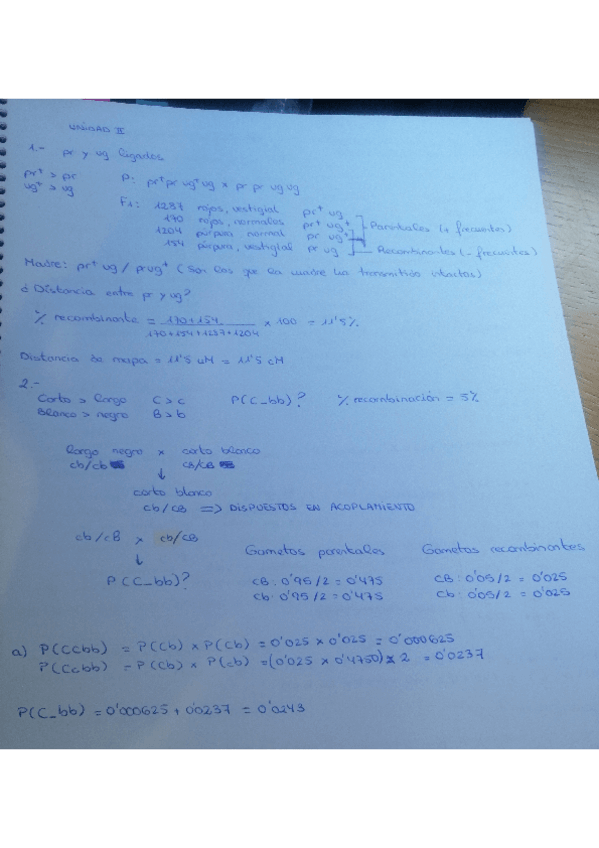 UNIDAD II
1.- pr y vg ligados
pr⁺ > pr
vg⁺ > vg
P: pr⁺pr vg⁺vg x pr pr vg vg
F1: 1287 rojos, vestigial pr⁺ vg
170 rojos, normales pr⁺ vg⁺
1204 púrpura normal pr vg⁺
154 púrpura, vestigial pr vg
Parentales (+ frecuentes)
Recombinantes (- frecuentes)
Madre: pr⁺ vg / pr vg⁺ (Son los que la madre ha transmitido intactos)
¿Distancia entre pr y vg?
% recombinante = 170+154 / 170+154+1287+1204 x 100 = 11'5%
Distancia de mapa = 11'5 uM = 11'5 cM
2.-
Corto > largo C > c P(C_bb)? % recombinación = 5%
Blanco > negro B > b
largo negro x corto blanco
cb/cb CB/CB
↓
corto blanco
cb/CB => DISPUESTOS EN ACOPLAMIENTO
cb/CB x cb/CB
↓
P(C_bb)?
Gametos parentales
CB: 0'95/2 = 0'475
cb: 0'95/2 = 0'475
Gametos recombinantes
cB: 0'05/2 = 0'025
Cb: 0'05/2 = 0'025
a) P(CCbb) = P(Cb) x P(Cb) = 0'025 x 0'025 = 0'000625
P(Ccbb) = P(Cb) x P(cb) = (0'025 x 0'4750) x 2 = 0'0237
P(C_bb) = 0'000625 + 0'0237 = 0'0243